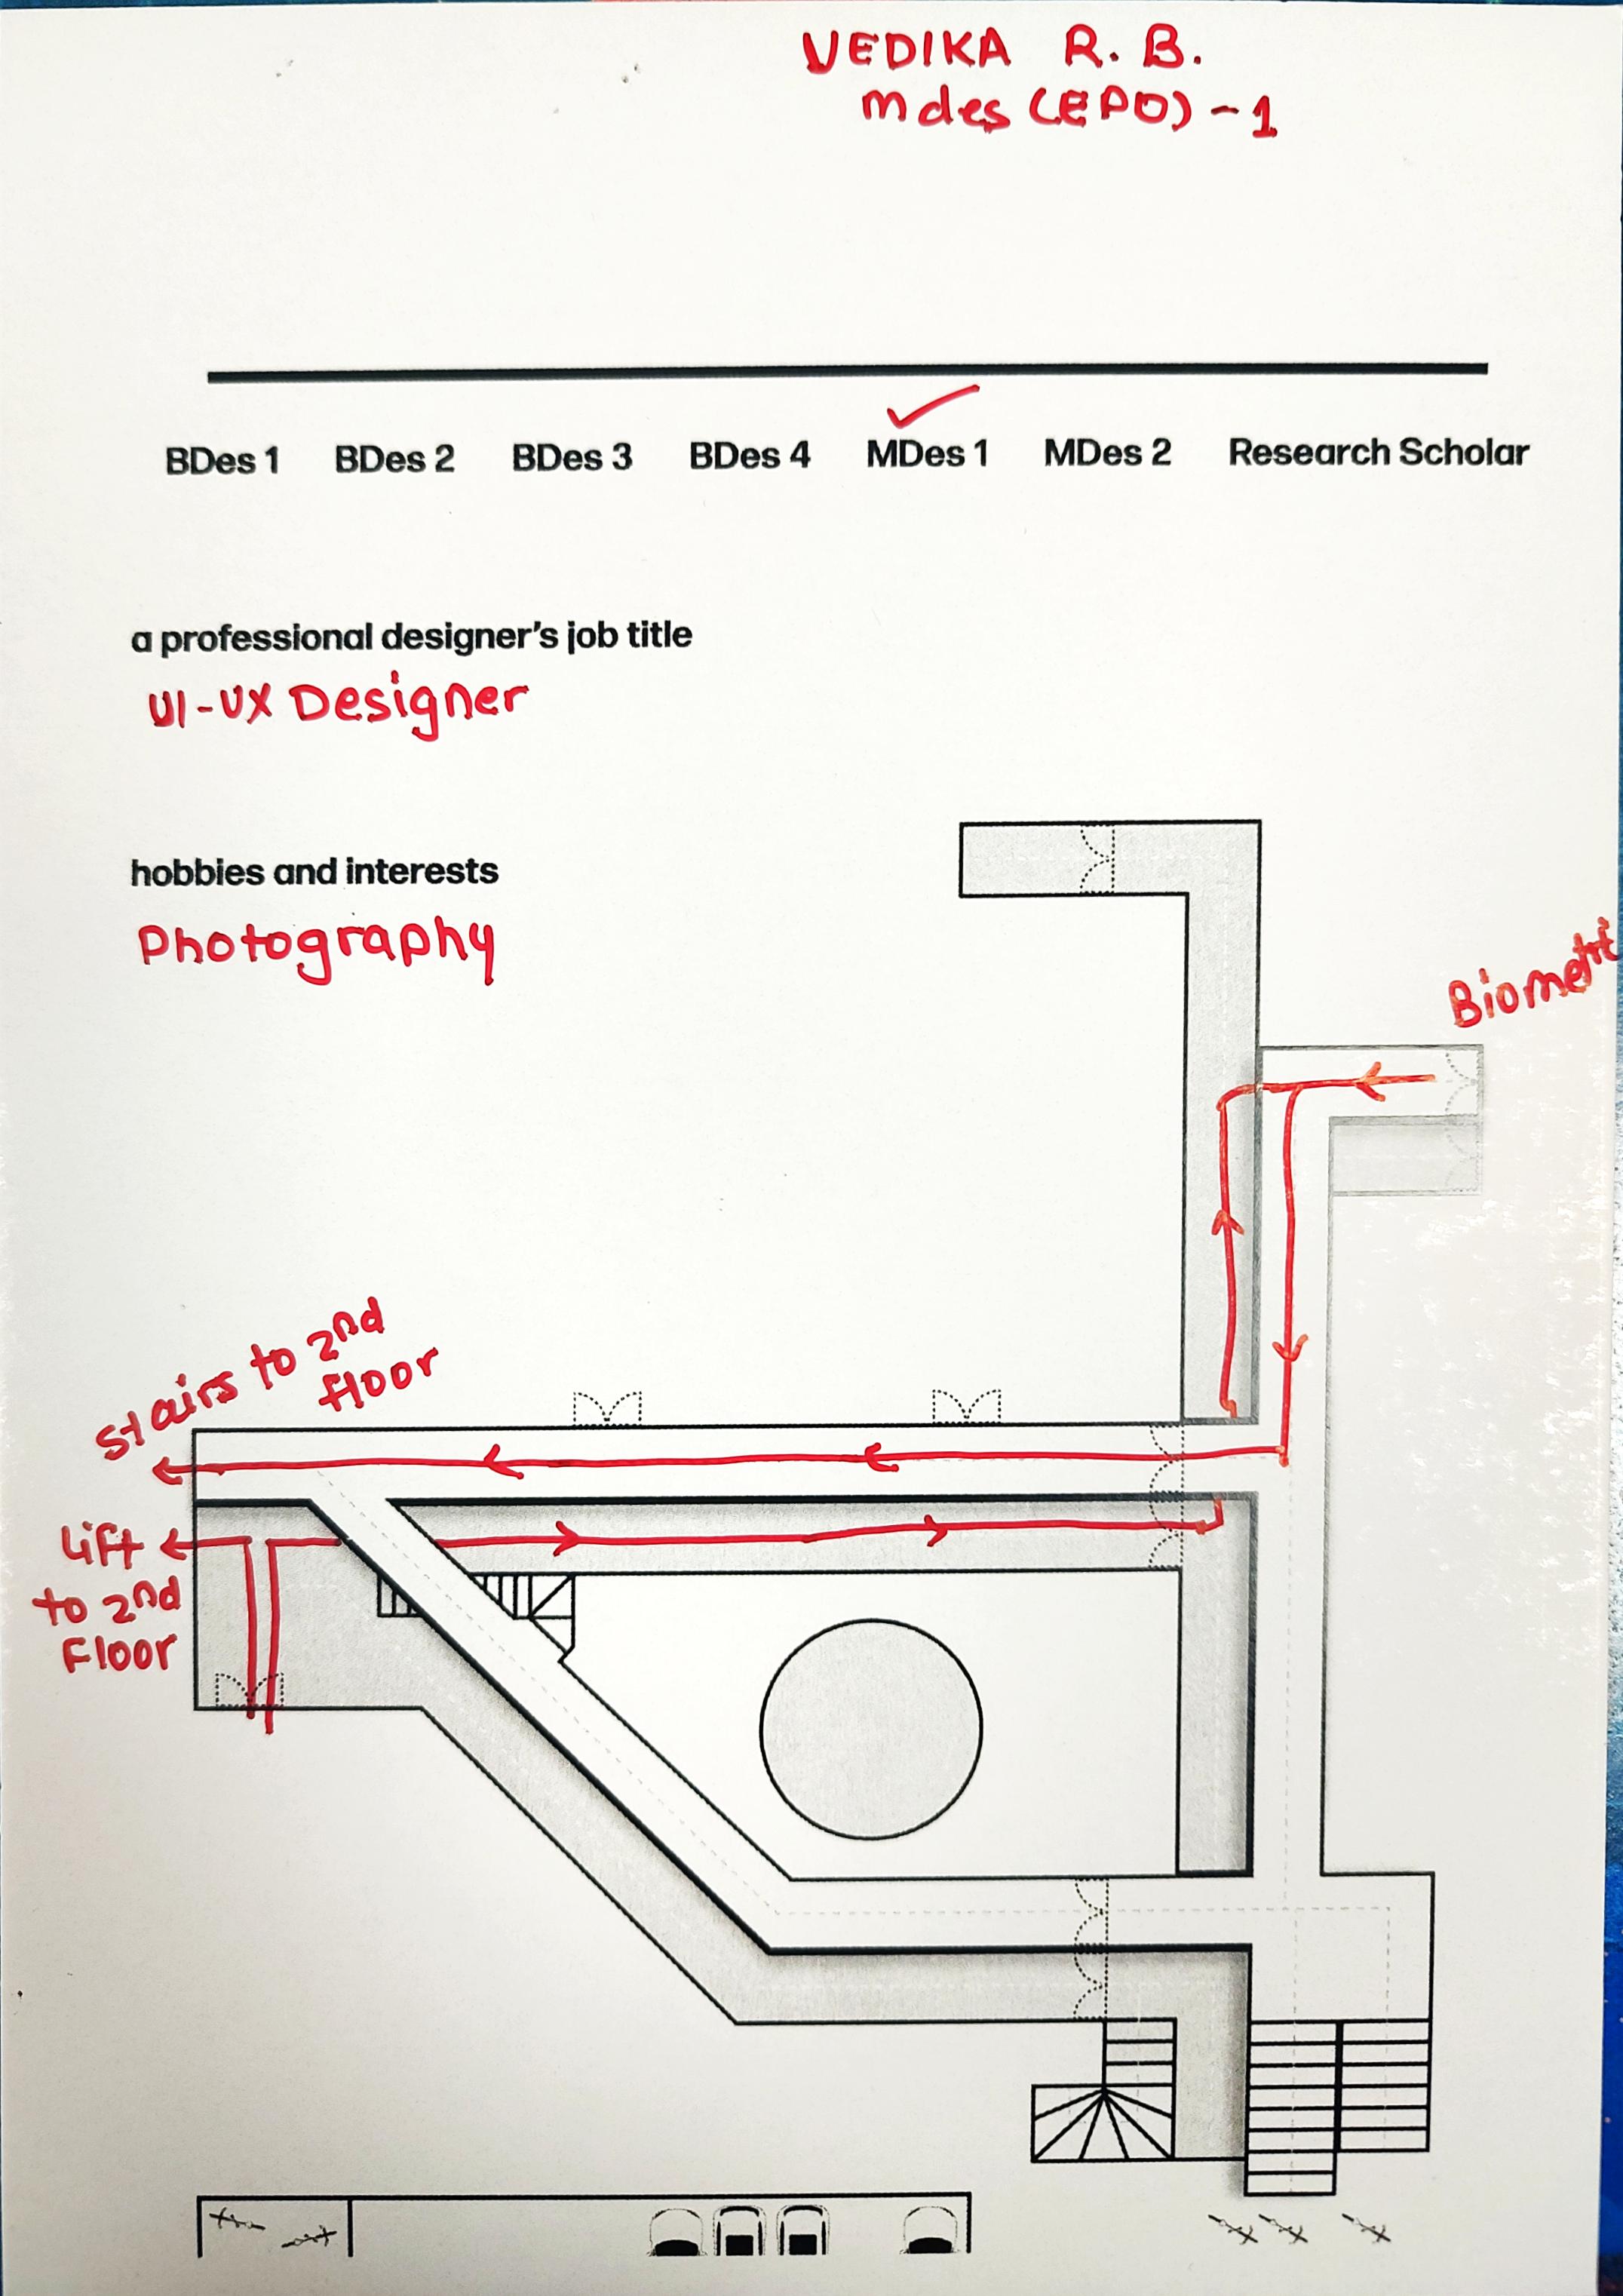 VEDIKA R. B.
Mdes (EPD) - 1
BDes 1 BDes 2 BDes 3 BDes 4 MDes 1 MDes 2 Research Scholar
a professional designer's job title
UI-UX Designer
hobbies and interests
Photography
Stairs to 2nd
floor
Lift
to 2nd
Floor